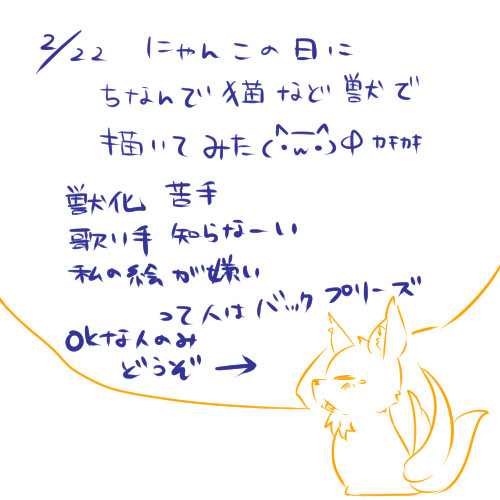 2/22 にゃんこの日に
ちなんで猫など獣で
描いてみた(^・w・^)φ ｶｷｶｷ
獣化 苦手
歌い手 知らなーい
私の絵が嫌い
って人はバックプリーズ
OKな人のみ
どうぞ →